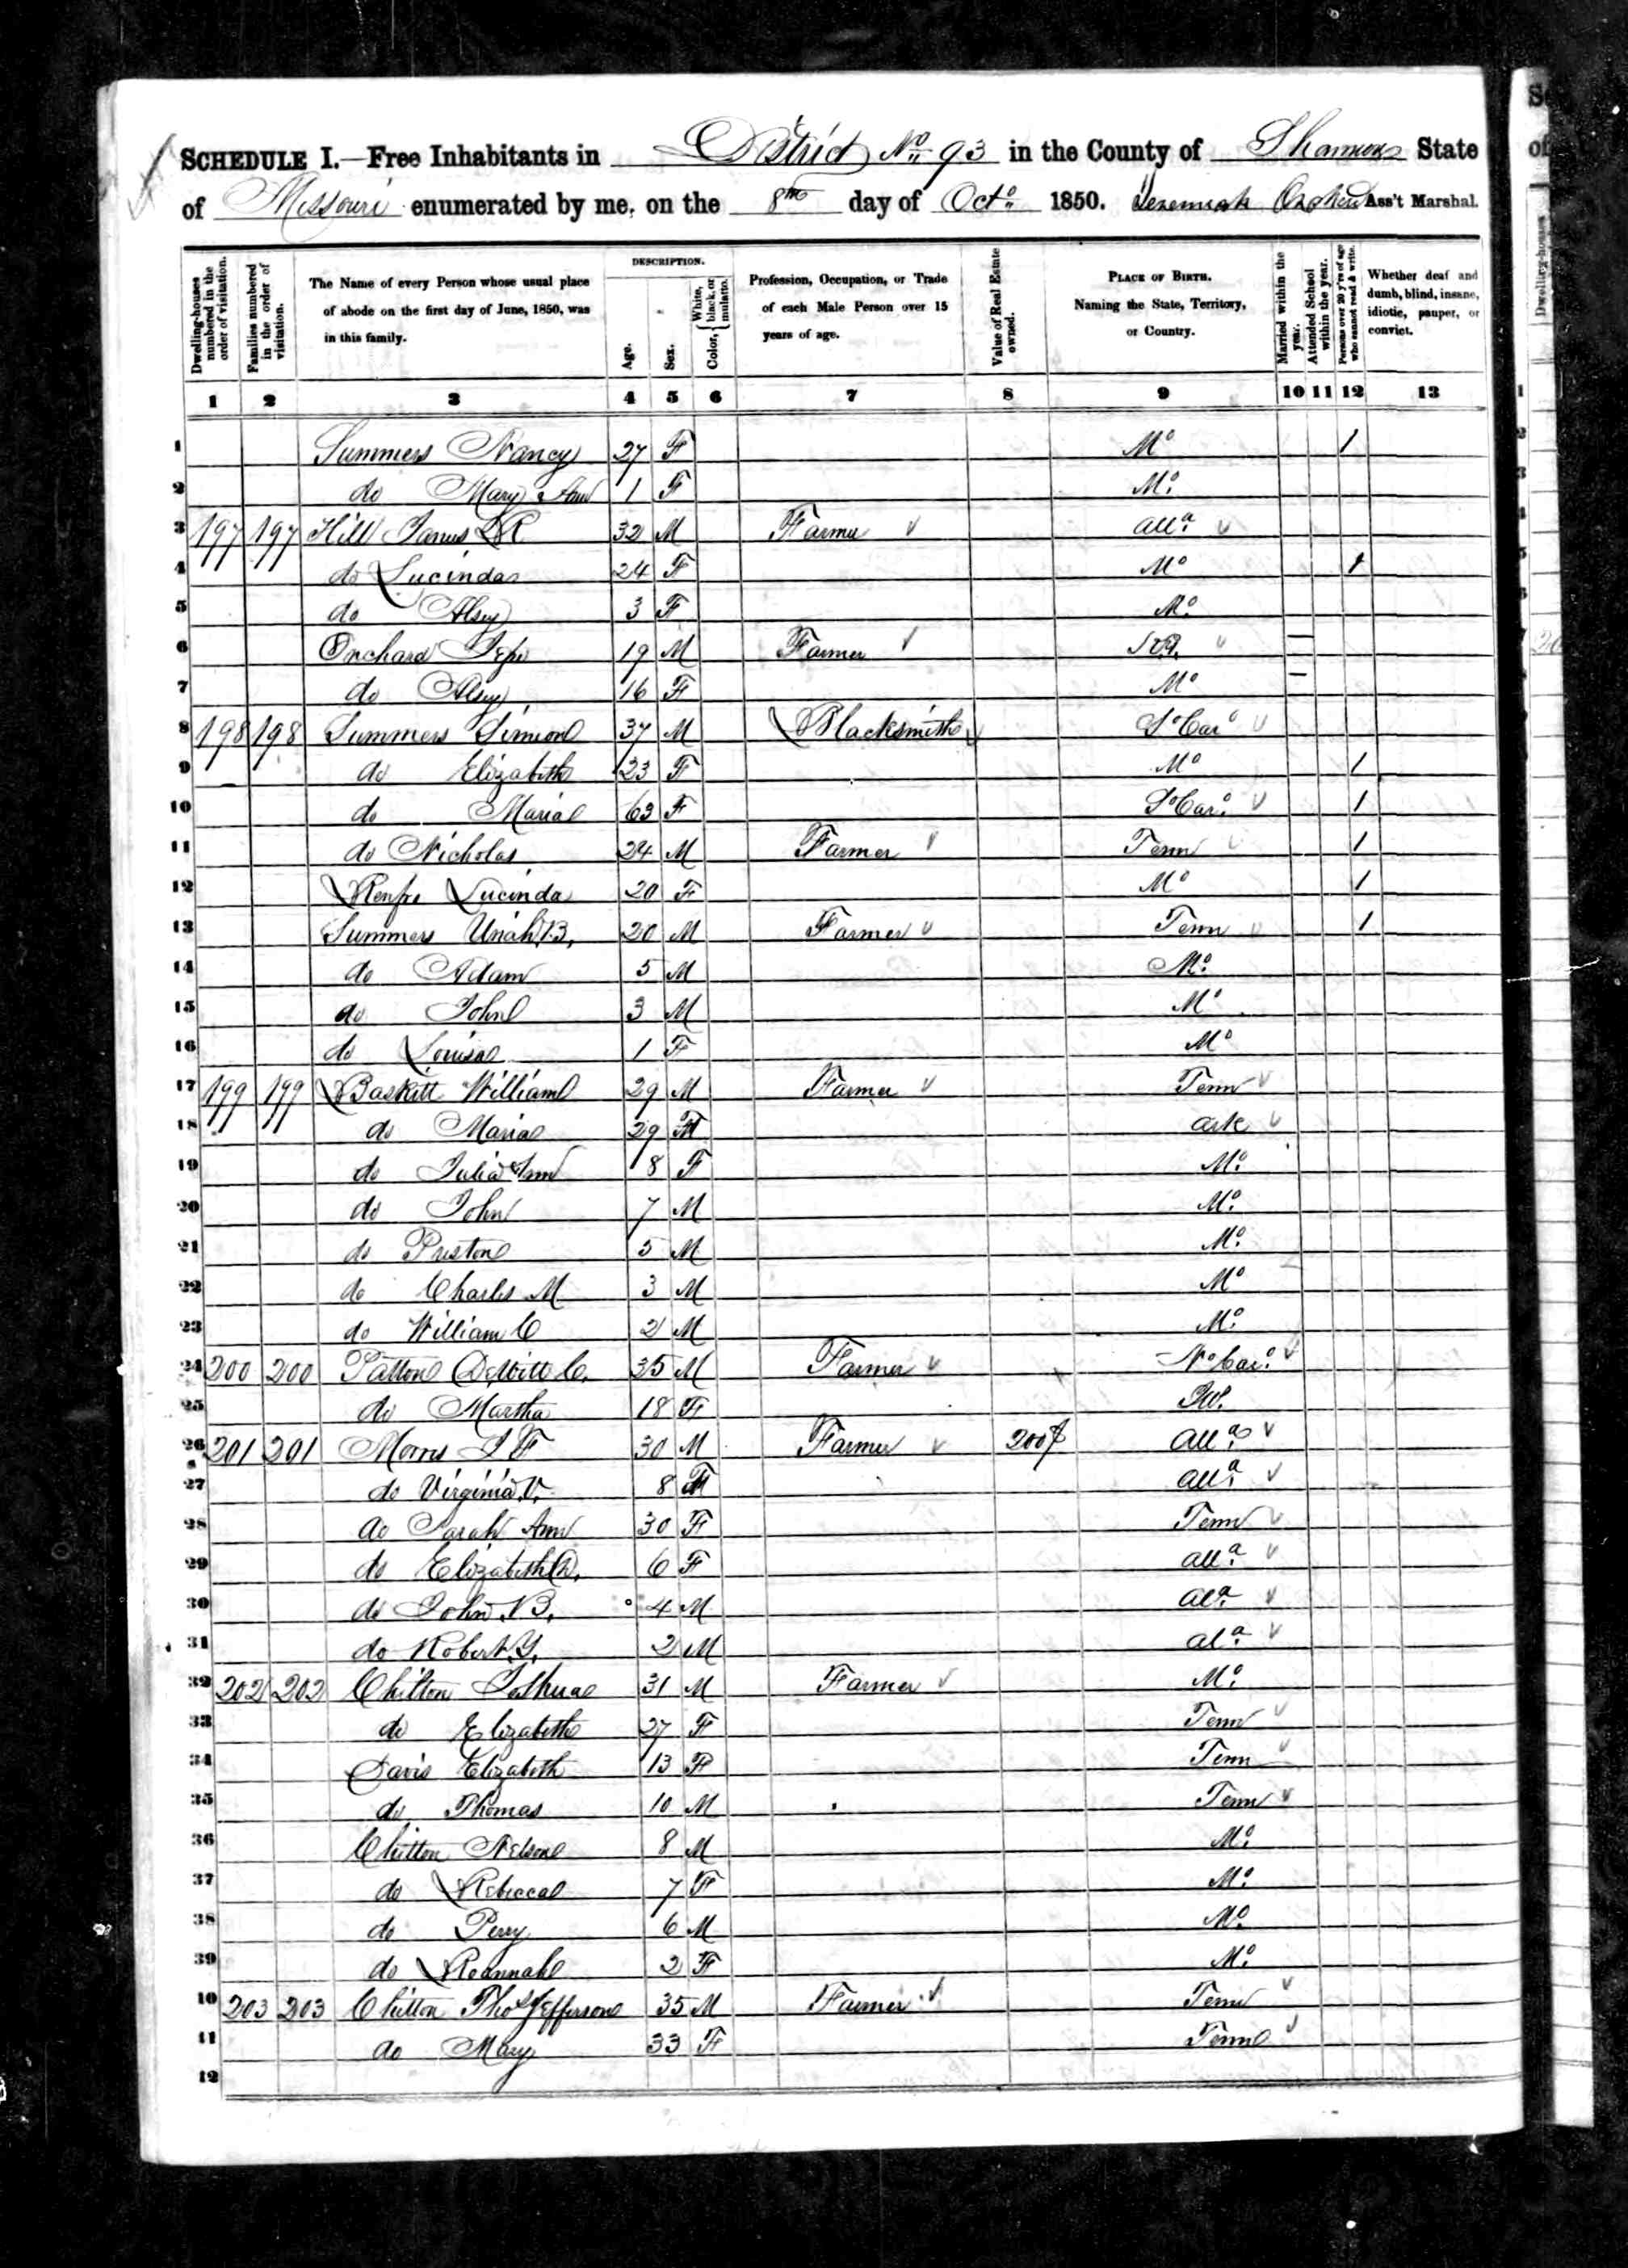 SCHEDULE I.—Free Inhabitants in District No. 93 in the County of Shannon State
of Missouri enumerated by me, on the 8th day of Octo. 1850. Jeremiah Orchard Ass't Marshal.
Dwelling-houses numbered in the order of visitation.
Families numbered in the order of visitation.
The Name of every Person whose usual place of abode on the first day of June, 1850, was in this family.
DESCRIPTION.
Age.
Sex.
Color, { White, black, or mulatto.
Profession, Occupation, or Trade of each Male Person over 15 years of age.
Value of Real Estate owned.
PLACE OF BIRTH. Naming the State, Territory, or Country.
Married within the year.
Attended School within the year.
Persons over 20 y'rs of age who cannot read & write.
Whether deaf and dumb, blind, insane, idiotic, pauper, or convict.
1 2 3 4 5 6 7 8 9 10 11 12 13
1 Summers Nancy 27 F Mo 1
2 do Mary Ann 1 F Mo.
3 197 197 Hill James R 32 M Farmer Alla.
4 do Lucinda 24 F Mo 1
5 do Alsey 3 F Mo.
6 Orchard Jesse 19 M Farmer —
7 do Alsey 16 F Mo —
8 198 198 Summers Simeon 37 M Blacksmith So Caro
9 do Elizabeth 23 F Mo 1
10 do Maria 63 F So Caro. 1
11 do Nicholas 24 M Farmer Tenn 1
12 Renfro Lucinda 20 F Mo 1
13 Summers Uriah B. 20 M Farmer Tenn 1
14 do Adam 5 M Mo.
15 do John 3 M Mo
16 do Louisa 1 F Mo
17 199 199 Baskitt William 29 M Farmer Tenn
18 do Maria 29 F Ark
19 do Julia Ann 8 F Mo.
20 do John 7 M Mo.
21 do Preston 5 M Mo.
22 do Charles M 3 M Mo
23 do William C 2 M Mo.
24 200 200 Patton DeWitt C. 35 M Farmer No Caro.
25 do Martha 18 F Ill.
26 201 201 Morris J F 30 M Farmer 200 Alla.
27 do Virginia V. 8 F Alla.
28 do Sarah Ann 30 F Tenn
29 do Elizabeth 6 F Alla.
30 do John B. 4 M Ala.
31 do Robert Y. 2 M Ala.
32 202 202 Chilton Joshua 31 M Farmer Mo.
33 do Elizabeth 27 F Tenn
34 Davis Elizabeth 13 F Tenn
35 do Thomas 10 M Tenn
36 Chilton Nelson 8 M Mo.
37 do Rebecca 7 F Mo.
38 do Perry 6 M Mo.
39 do Roannah 2 F Mo.
10 203 203 Chilton Thos Jefferson 35 M Farmer Tenn
11 do Mary 33 F Tenn
12